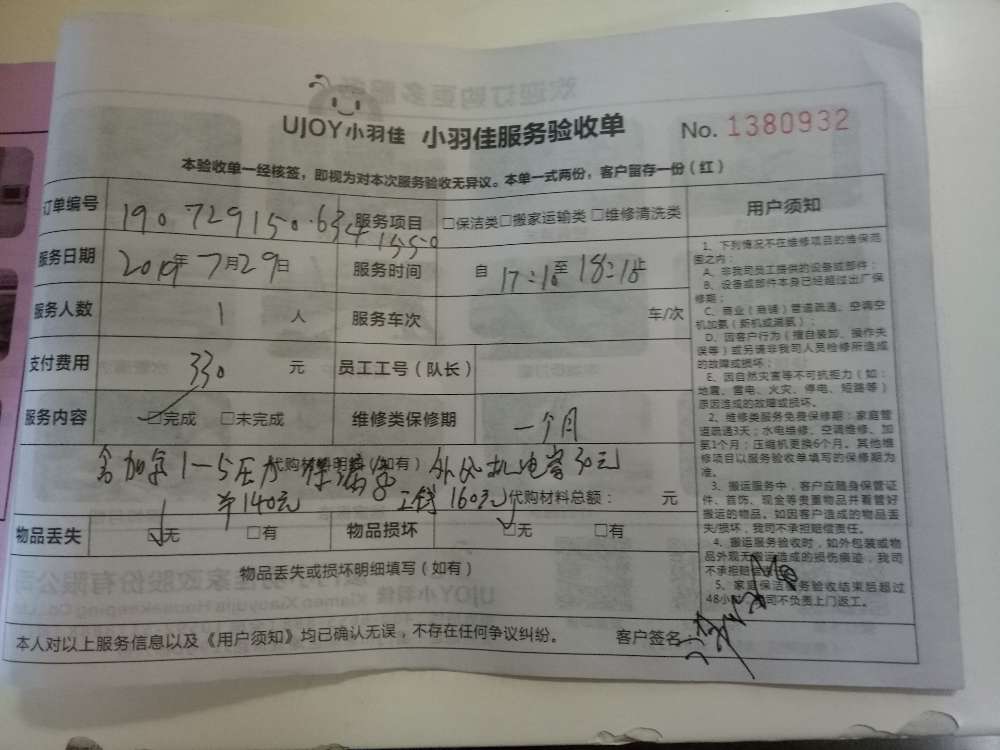 UJOY小羽佳 小羽佳服务验收单 No. 1380932
本验收单一经核签，即视为对本次服务验收无异议。本单一式两份，客户留存一份（红）
订单编号 190729150 服务项目 □保洁类□搬家运输类□维修清洗类
服务日期 2019年7月29日 服务时间 自 17:18 至 18:18 止
服务人数 1 人 服务车次 车/次
支付费用 330 元 员工工号（队长）
服务内容 □完成 □未完成 维修类保修期 一个月
代购材料明细（如有） 加氟1-5压力 外风机电容30元
140元 工钱160元 代购材料总额： 元
物品丢失 □无 □有 物品损坏 □无 □有
物品丢失或损坏明细填写（如有）
本人对以上服务信息以及《用户须知》均已确认无误，不存在任何争议纠纷。 客户签名：
用户须知
1、下列情况不在维修项目的维保范
围之内：
A、非我司员工提供的设备或部件；
B、设备或部件本身已经超过出厂保
修期；
C、商业（商铺）管道疏通、空调空
机加氨（新机或漏氨）；
D、因客户行为（擅自装卸、操作失
误等）或另请非我司人员检修所造成
的故障或损坏；
E、因自然灾害等不可抗拒力（如：
地震、雷电、火灾、停电、短路等）
原因造成的故障或损坏。
2、维修类服务免费保修期：家庭管
道疏通3天；水电维修、空调维修、加
氨1个月；压缩机更换6个月。其他维
修项目以服务验收单填写的保修期为
准。
3、搬运服务中，客户应随身保管证
件、首饰、现金等贵重物品并看管好
搬运的物品。如因客户造成的物品丢
失/损坏，我司不承担赔偿责任。
4、搬运服务验收时，如外包装或物
品外观无搬运造成的损伤痕迹，我司
不承担赔偿
5、家庭保洁服务验收结束后超过
48小时 司不负责上门返工。